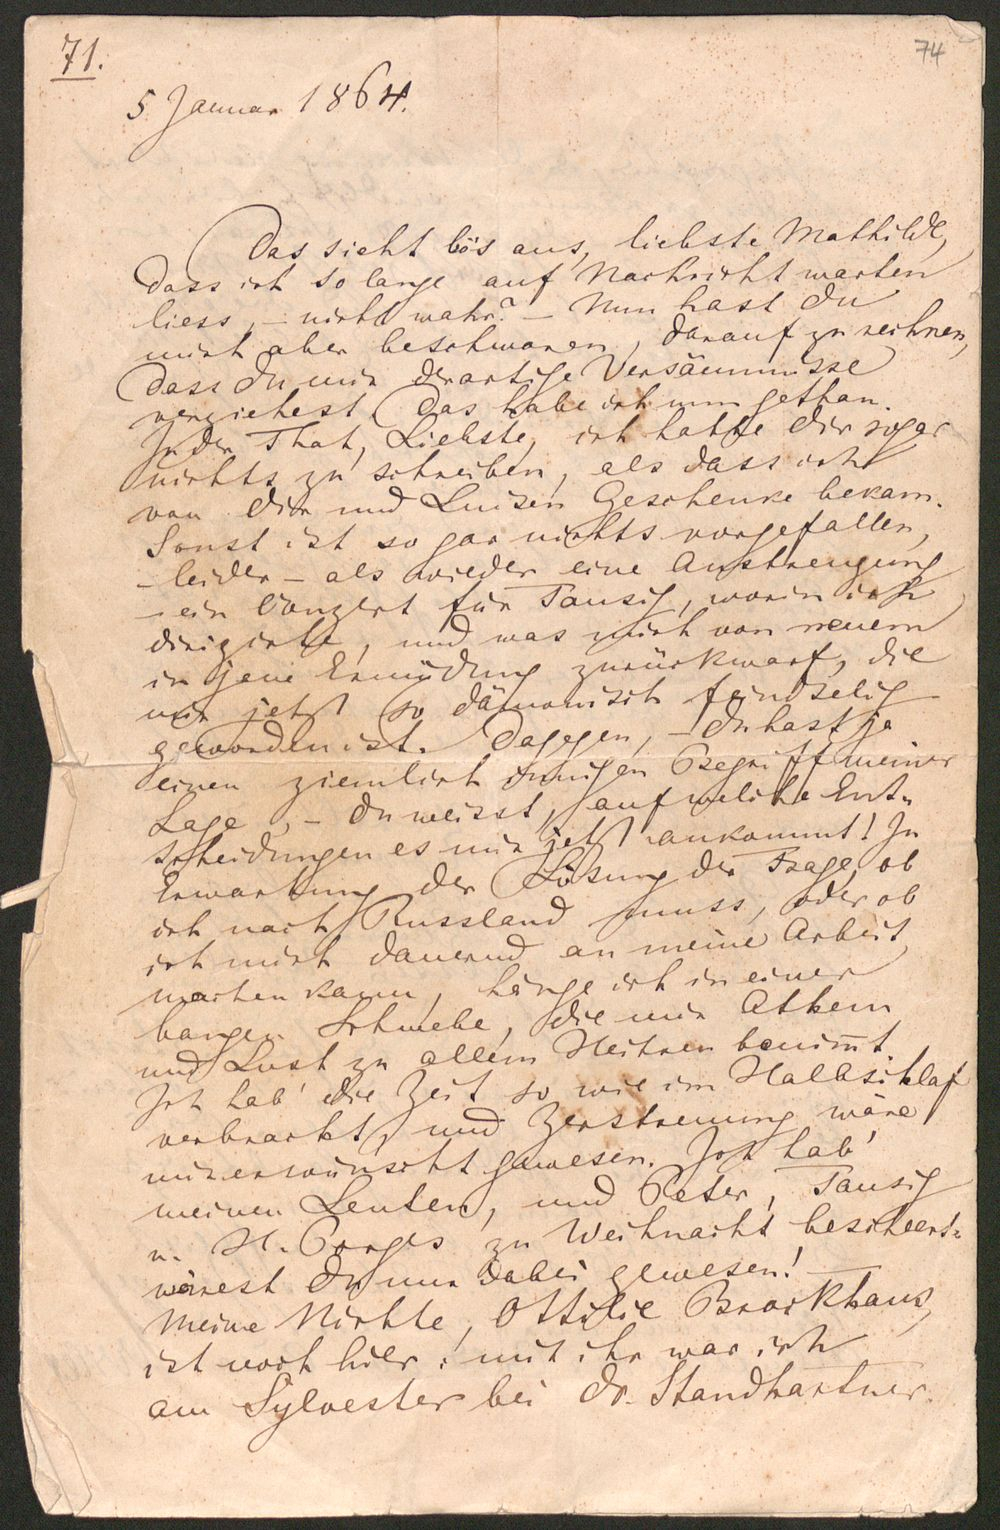 71.
74
5 Januar 1864.
Das sieht bös aus, liebste Mathilde,
dass ich so lange auf Nachricht warten
liess, – nicht wahr? – Nun hast Du
mich aber beschworen, darauf zu rechnen,
dass Du mir derartige Versäumnisse
verziehest. Das habe ich nun gethan.
In der That, Liebste, ich hatte Dir sogar
nichts zu schreiben, als dass ich
von Dir und Luisen Geschenke bekam.
Sonst ist so gar nichts vorgefallen,
– leider – als wieder eine Anstrengung
– ein Conzert für Tausig, worin ich
dirigirte, und was mich von neuem
in jene Ermüdung zurückwarf, die
mir jetzt so dämonisch feindselig
geworden ist. Dagegen, – Du hast ja
einen ziemlich innigen Begriff meiner
Lage, – Du weisst, auf welche Ent-
scheidungen es mir jetzt ankommt! In
Erwartung der Lösung der Frage, ob
ich nach Russland muss, oder ob
ich mich dauernd an meine Arbeit
machen kann, hänge ich in einer
bangen Schwebe, die mir Athem
und Lust zu allem Heitren benim̅t.
Ich hab' die Zeit so wie im Halbschlaf
verbracht, und Zerstreuung wäre
mir erwünscht gewesen. Ich hab'
meinen Leuten, und Peter, Tausig
u. H. Porges zu Weihnacht bescheert-
wärest Du nur dabei gewesen! —
Meine Nichte, Ottilie Brockhaus,
ist noch hier: mit ihr war ich
am Sylvester bei Dr. Standhartner.